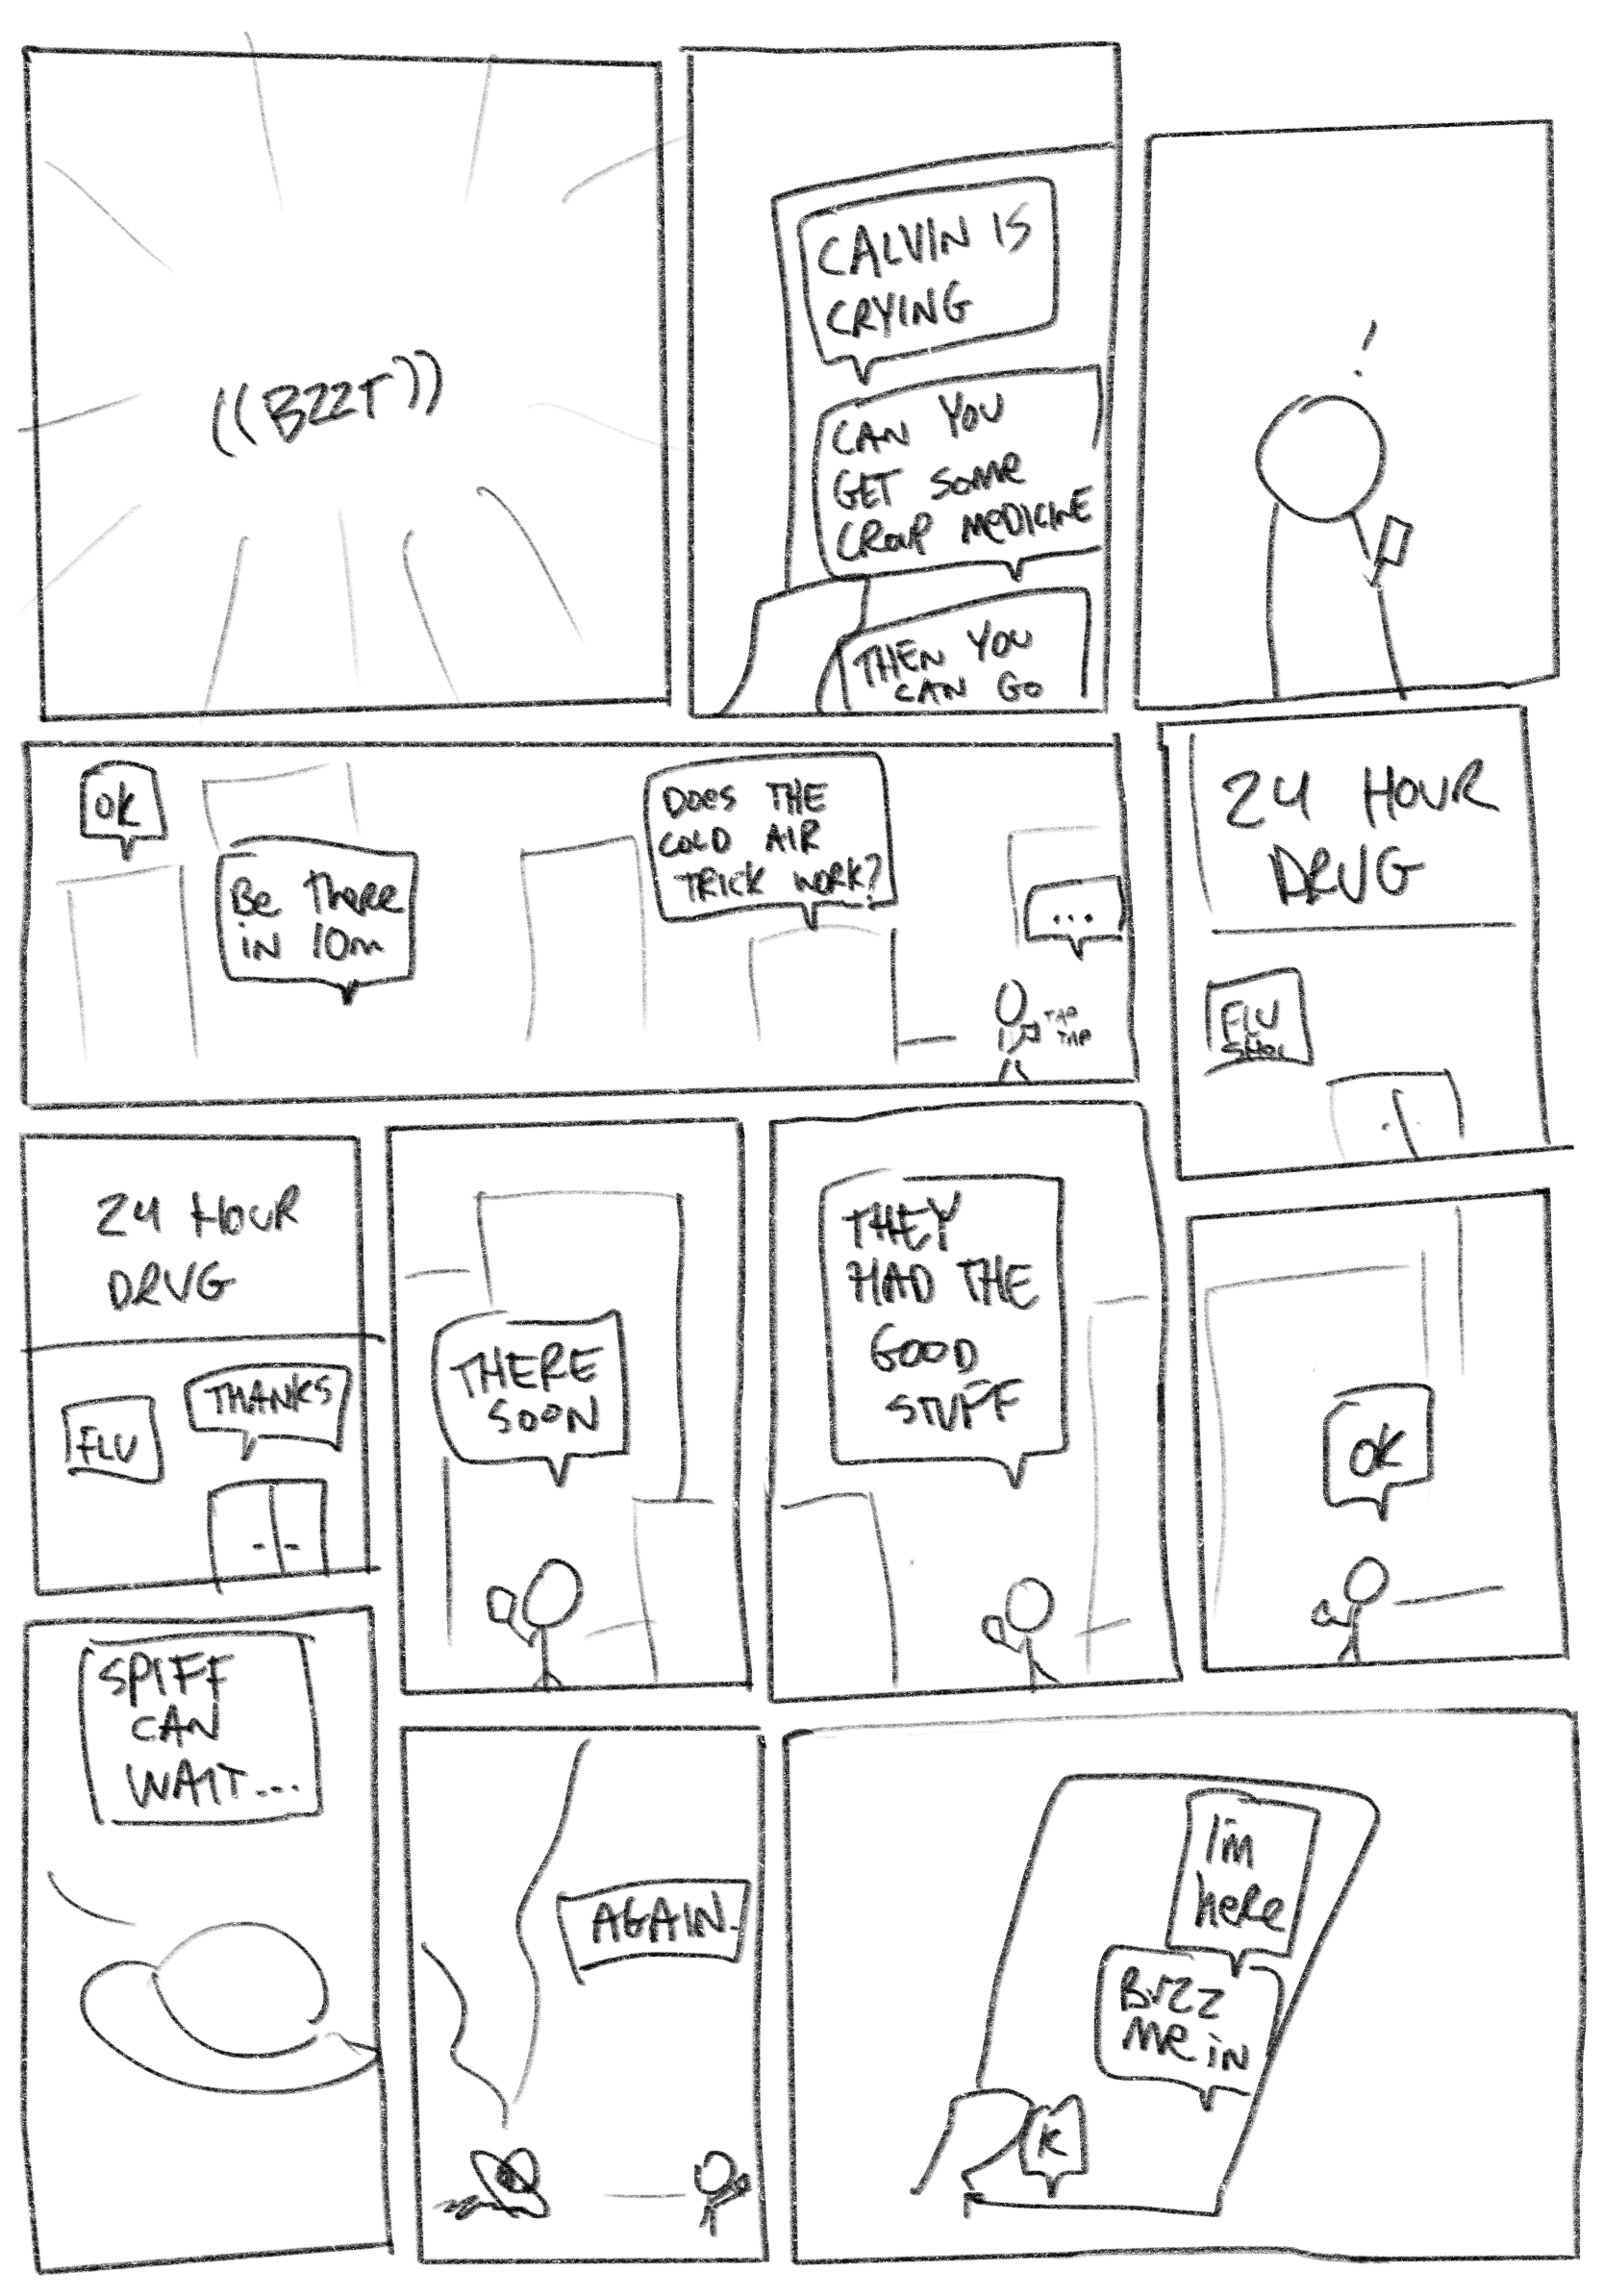 ((BZZT))
CALVIN IS
CRYING
CAN YOU
GET SOME
CROUP MEDICINE
THEN YOU
CAN GO
!
OK
Be There
in 10m
DOES THE
COLD AIR
TRICK WORK?
...
TAP
TAP
24 HOUR
DRUG
FLU
SHOT
24 HOUR
DRUG
FLU
THANKS
THERE
SOON
THEY
HAD THE
GOOD
STUFF
OK
SPIFF
CAN
WAIT...
AGAIN.
I'm
here
BUZZ
ME IN
K